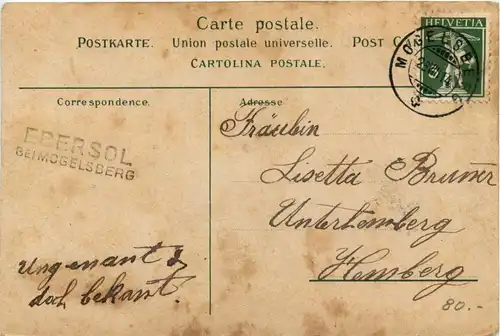 Carte postale.
POSTKARTE. Union postale universelle. POST C
CARTOLINA POSTALE.
HELVETIA
MOGELSBE
Correspondence.
Adresse
EBERSOL
BEI MOGELSBERG
Fräulein
Lisetta Brunner
Unterbemberg
Hemberg
Ungenant &
doch bekant.
80.-